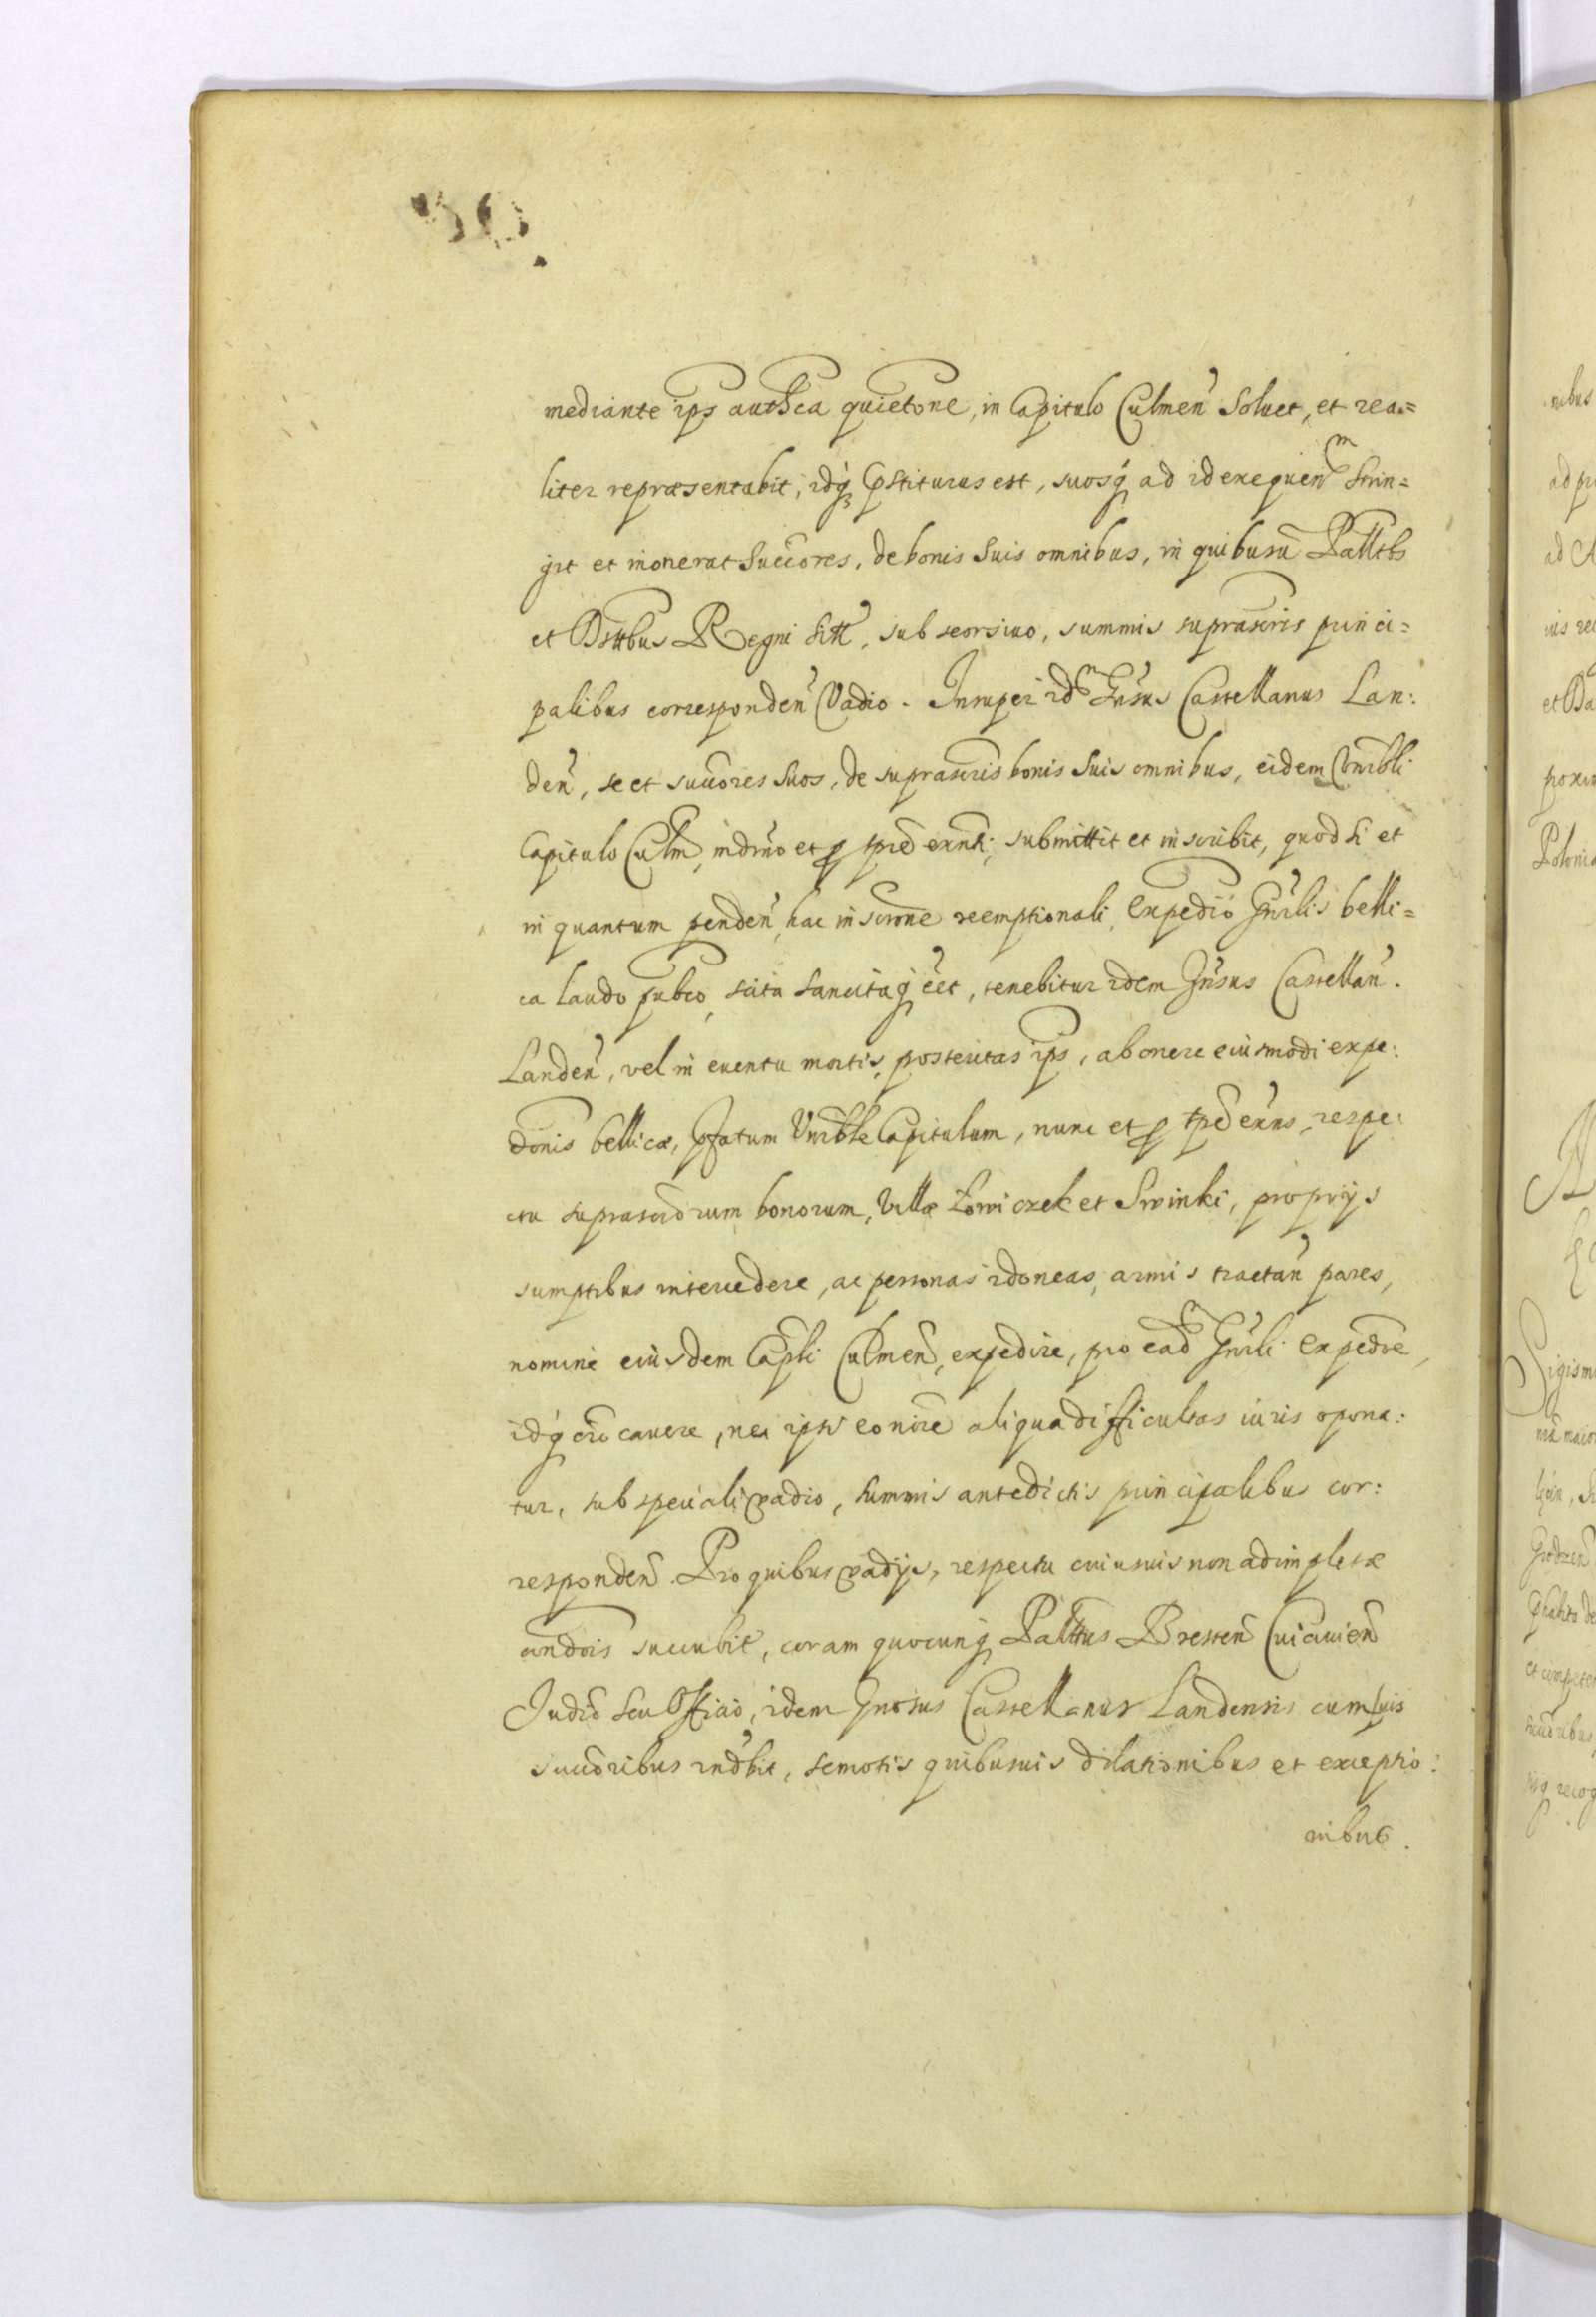 50.
mediante ips autħca quietõne, in Capitulo Culmeñ Soluet, et rea=
liter repræsentabit, idq₃ Pstiturus est, suosq₃ ad id exequeñ strin=
git et inonerat Succõres, de bonis Suis omnibus, in quibusũ Pallťbs
et Dsttbus Regni Sitť, sub seorsiuo, summis suprascris princi=
palibus correspondeñ Vadio. Insuper idm Gnsus Castellanus Lan:
deñ, se et succõres Suos, de suprascris bonis Suis omnibus, eidem Vnrbli
Capitulo Culm, indmo et p tpe exnti, submittit et inscribit, quod si et
in quantum pendeñ, hac inscrone reemptionali, Expedio Gnrlis belli=
ca laudo pubco, scita sancitaq₃ eet, tenebitur idem Gnsus Castellañ.
Landeñ, vel in euentu mortis, posteritas ips, ab onere eiusmodi expe:
dõnis bellicæ, pfatum Vnrble Capitulum, nunc et p tpe exns, respe:
ctu suprascrõrum bonorum, Villæ Łowiczek et Swinki, proprijs
sumptibus intercedere, ac personas idoneas, armis tractañ pares,
nomine eiusdem Capli Culmeñ, expedire, pro eadm Gnrli Expedõe,
idq₃ oĩo cauere, nec ipsi eo noĩe aliqua difficultas iuris opona:
tur, sub speciali vadio, summis antedictis principalibus cor:
respondeñ. Pro quibus vadijs, respectu cuiusuis non adimpletæ
cõndois succubit, coram quocunq₃ Palttus Bresteñ Cuiauieñ
Judõ seu Offião, idem Gnosus Castellanus Landensis cum suis
succõribus rndbit, semotis quibusuis dilationibus et exceptio:
nibus.